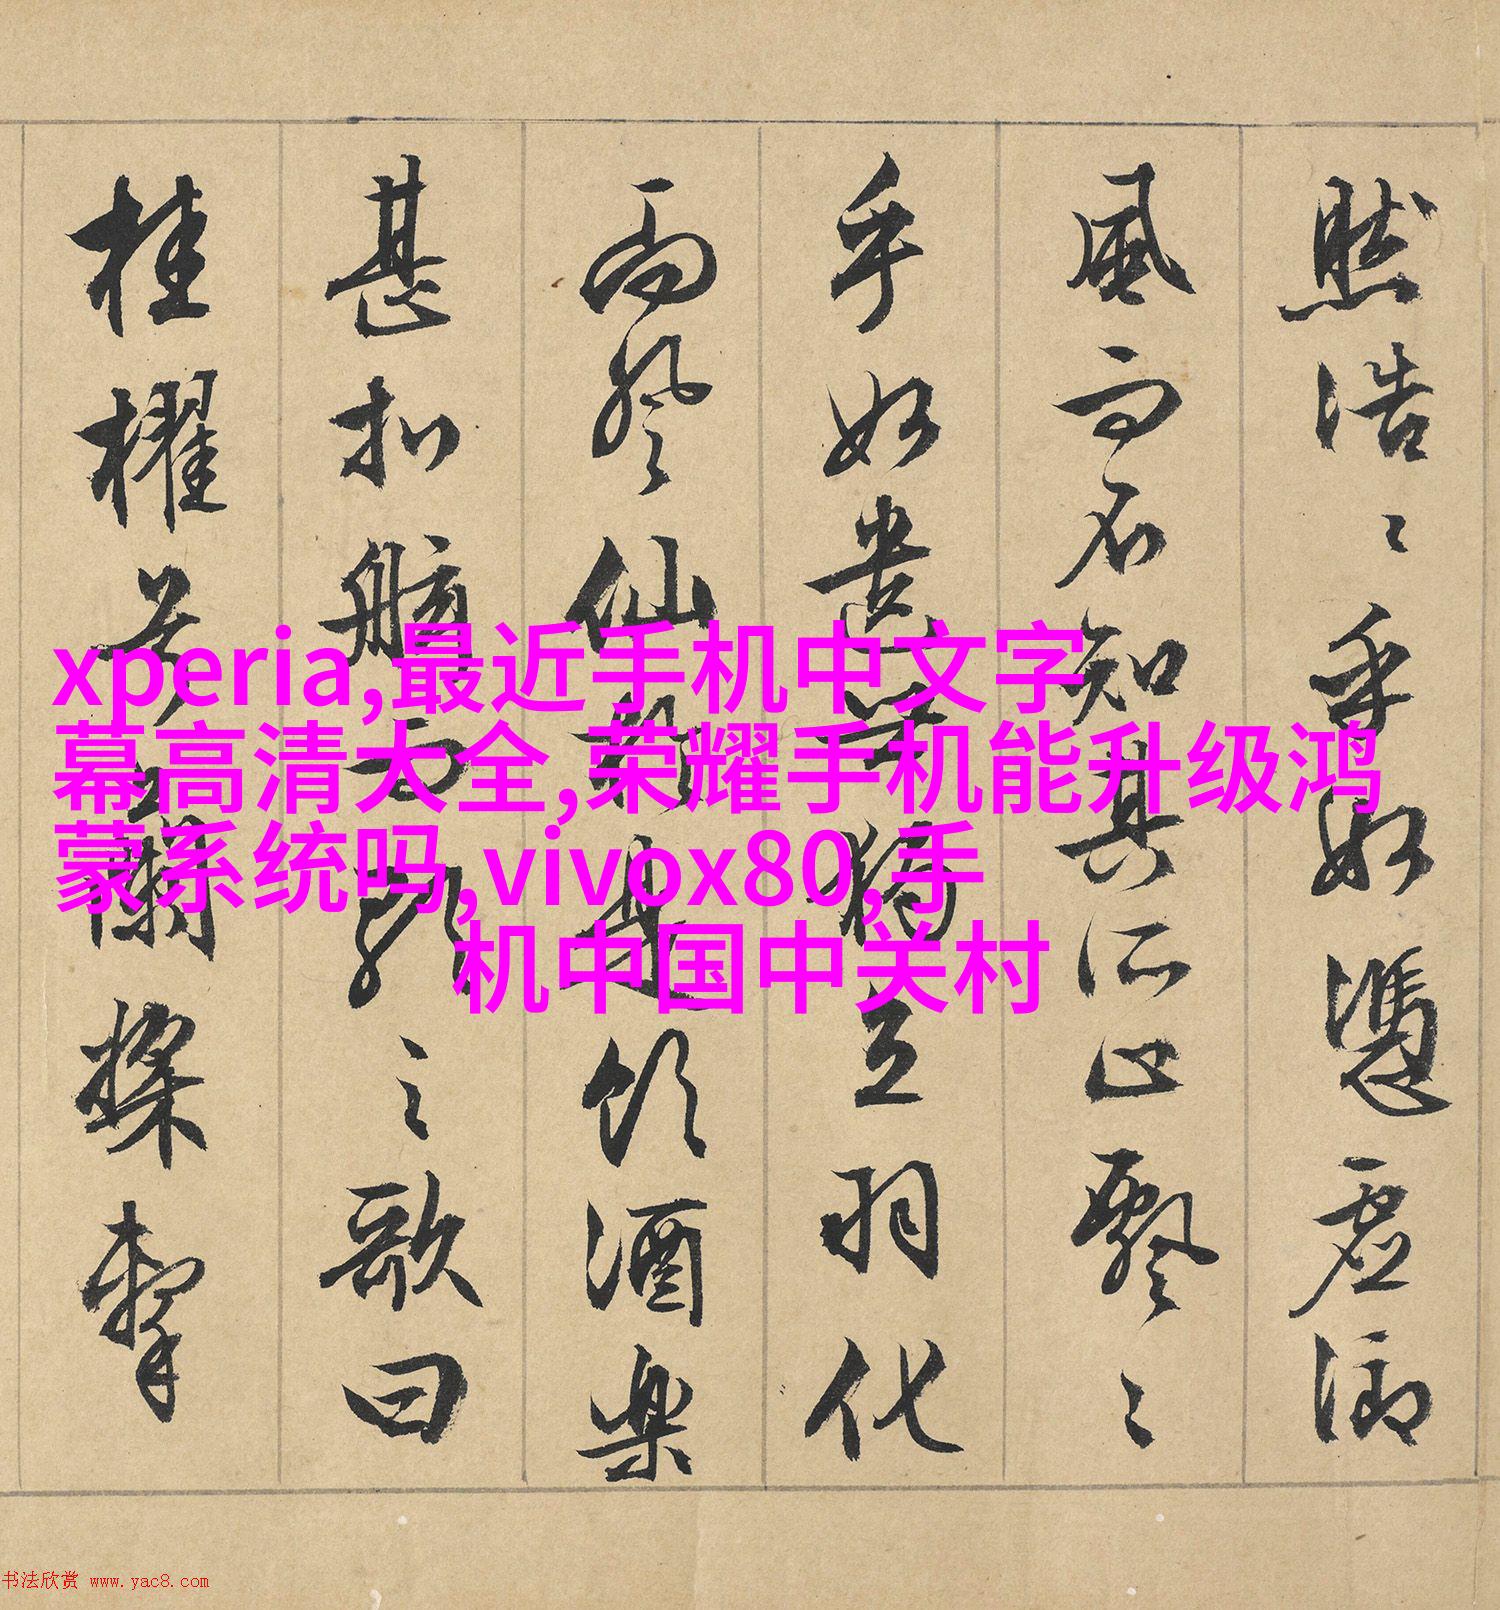 然浩〻乎如憑虛御
風而不知其所止飄〻
乎如遺世獨立羽化
而登仙於是飲酒樂
甚扣舷而歌之歌曰
桂櫂兮蘭槳擊
xperia,最近手机中文字
幕高清大全,荣耀手机能升级鸿
蒙系统吗,vivox80,手
机中国中关村
书法欣赏 www.yac8.com